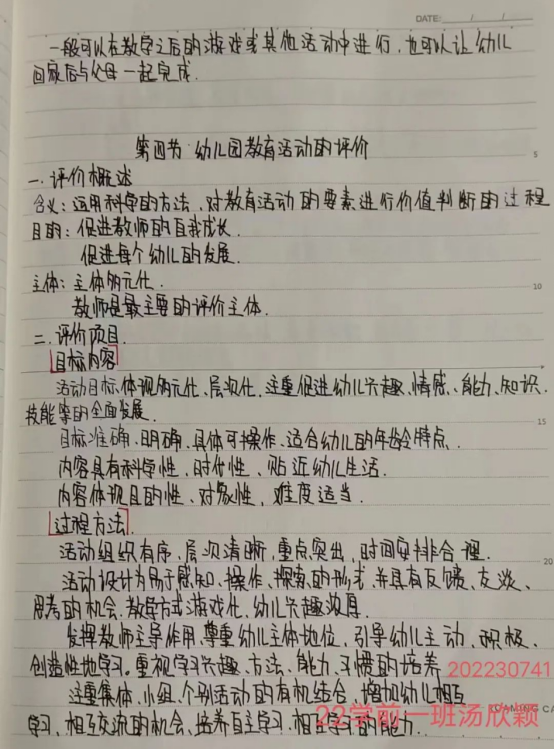 DATE: / /
一般可以在教学之后的游戏或其他活动中进行,也可以让幼儿
回家后与父母一起完成.
第四节 幼儿园教育活动的评价
5
一.评价概述
含义:运用科学的方法,对教育活动的要素进行价值判断的过程
目的:促进教师的自我成长.
促进每个幼儿的发展.
主体:主体多元化.
10
教师是最主要的评价主体.
二.评价项目.
目标内容
活动目标体现多元化、层次化,注重促进幼儿兴趣、情感、能力、知识、
技能等的全面发展.
15
目标准确、明确、具体可操作、适合幼儿的年龄特点.
内容具有科学性、时代性、贴近幼儿生活.
内容体现目的性、对象性,难度适当.
过程方法
活动组织有序、层次清晰,重点突出,时间安排合理.
20
活动设计为易于感知、操作、探索的形式,并具有反馈、交谈、
思考的机会.教学方式游戏化,幼儿兴趣浓厚.
发挥教师主导作用,尊重幼儿主体地位,引导幼儿主动、积极、
创造性地学习.重视学习兴趣、方法、能力、习惯的培养
202230741
注重集体、小组、个别活动的有机结合,增加幼儿相互
学习、相互交流的机会,培养自主学习、相互学习的能力.
22学前一班汤欣颖